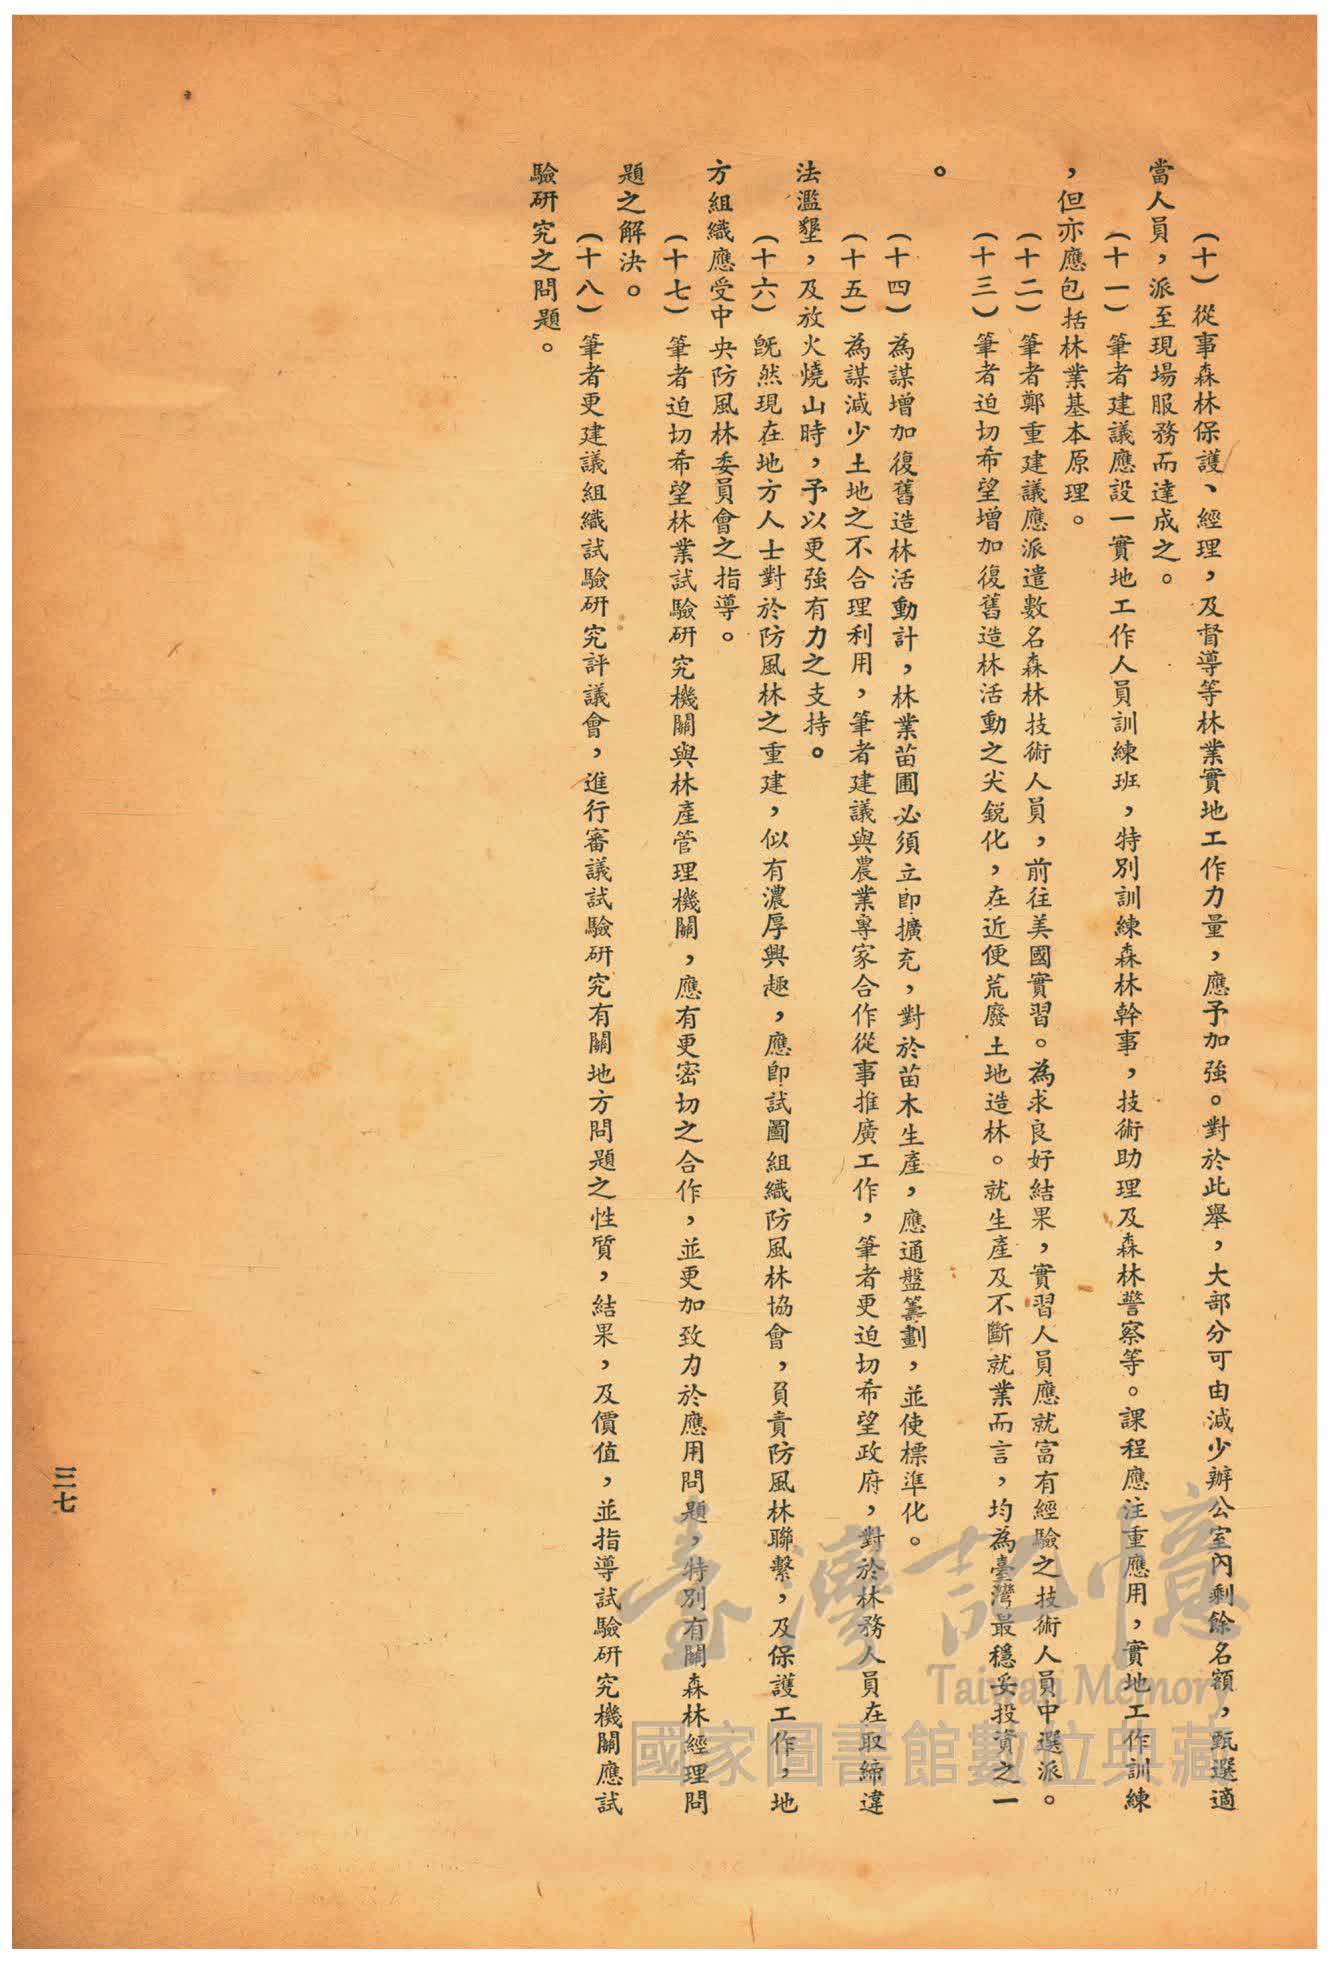 (十)從事森林保護、經理,及督導等林業實地工作力量,應予加強。對於此舉,大部分可由減少辦公室內剩餘名額,甄選適
當人員,派至現場服務而達成之。
(十一)筆者建議應設一實地工作人員訓練班,特別訓練森林幹事,技術助理及森林警察等。課程應注重應用,實地工作訓練
,但亦應包括林業基本原理。
(十二)筆者鄭重建議應派遣數名森林技術人員,前往美國實習。為求良好結果,實習人員應就富有經驗之技術人員中選派。
(十三)筆者迫切希望增加復舊造林活動之尖銳化,在近便荒廢土地造林。就生產及不斷就業而言,均為臺灣最穩妥投資之一
。
(十四)為謀增加復舊造林活動計,林業苗圃必須立即擴充,對於苗木生產,應通盤籌劃,並使標準化。
(十五)為謀減少土地之不合理利用,筆者建議與農業專家合作從事推廣工作,筆者更迫切希望政府,對於林務人員在取締違
法濫墾,及放火燒山時,予以更強有力之支持。
(十六)既然現在地方人士對於防風林之重建,似有濃厚興趣,應即試圖組織防風林協會,負責防風林聯繫,及保護工作,地
方組織應受中央防風林委員會之指導。
(十七)筆者迫切希望林業試驗研究機關與林產管理機關,應有更密切之合作,並更加致力於應用問題,特別有關森林經理問
題之解決。
(十八)筆者更建議組織試驗研究評議會,進行審議試驗研究有關地方問題之性質,結果,及價值,並指導試驗研究機關應試
驗研究之問題。
三七
臺灣記憶
Taiwan Memory
國家圖書館數位典藏